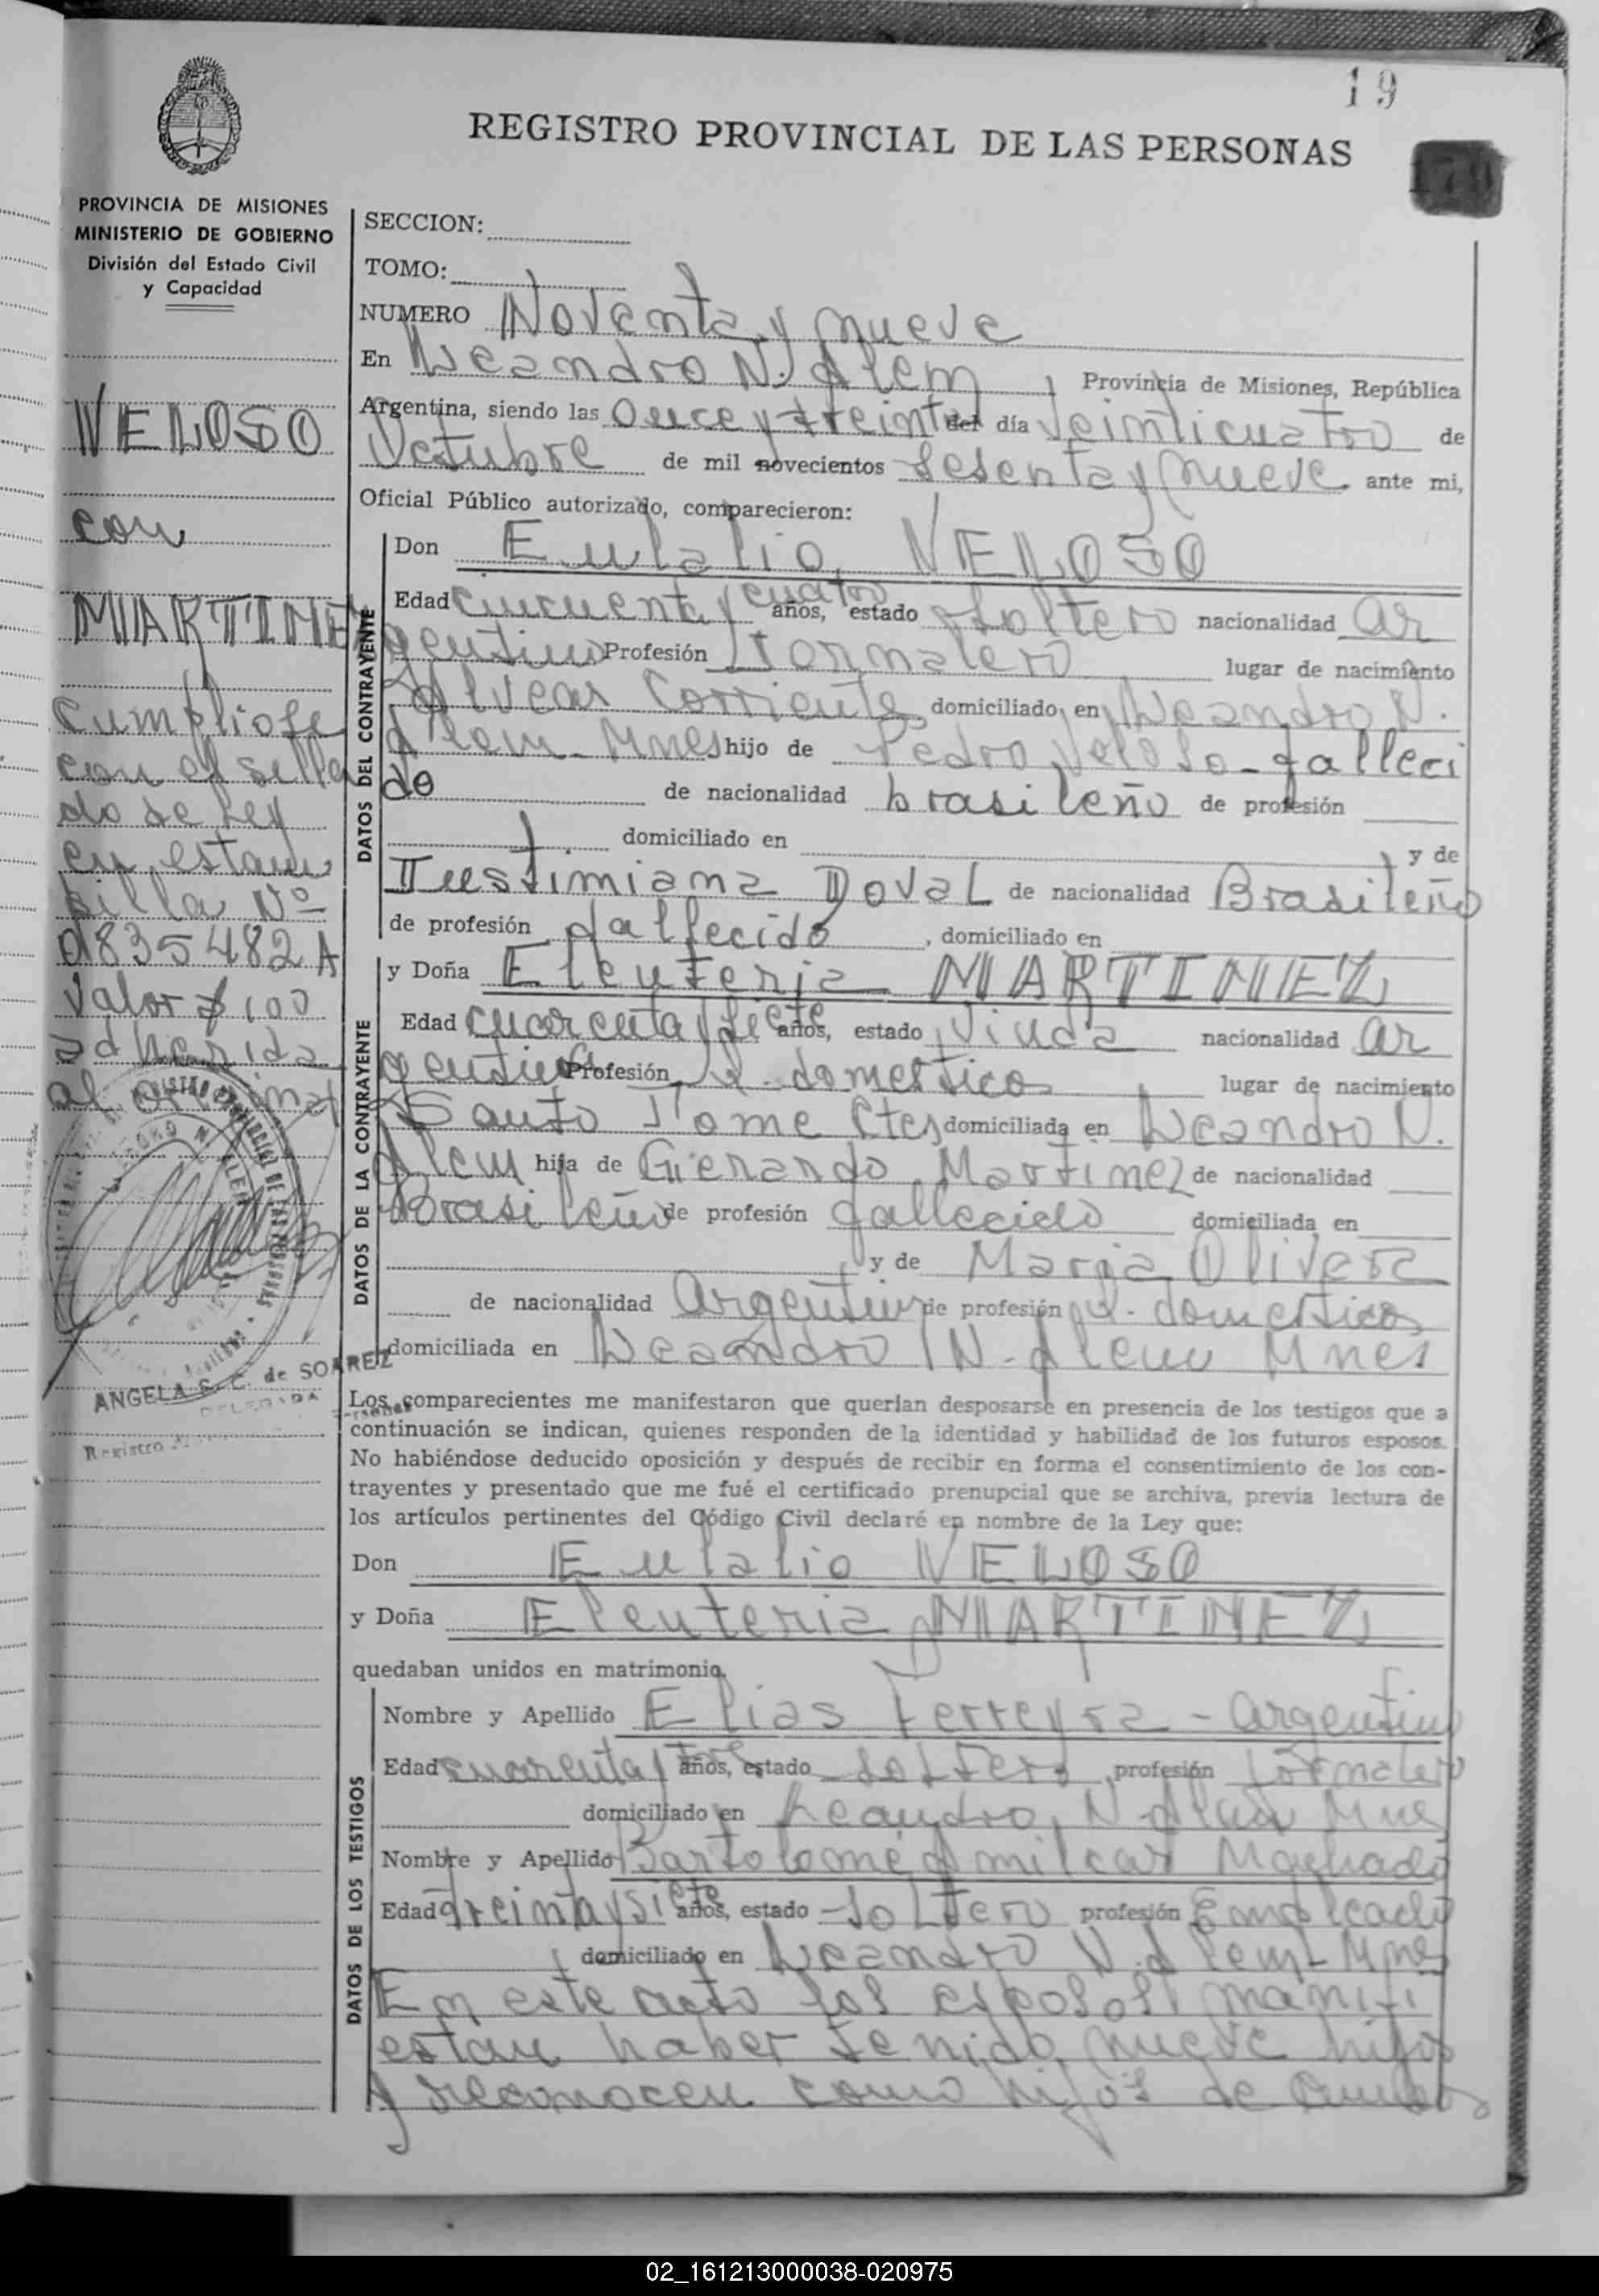 19
REGISTRO PROVINCIAL DE LAS PERSONAS
PROVINCIA DE MISIONES
MINISTERIO DE GOBIERNO
División del Estado Civil
y Capacidad
VELOSO
con
MARTINE
Cumpliose
con el sella
do de Ley
en estam
pilla Nº
835482 A
Valor $ 100
adherida
al original
ANGELA S. C. de SOAREZ
DELEGADA
Registro
SECCION:
TOMO:
NUMERO Noventa y nueve
En Leandro N. Alem, Provincia de Misiones, República
Argentina, siendo las Once y treinta del día Veinticuatro de
Octubre de mil novecientos Sesenta y nueve ante mi,
Oficial Público autorizado, comparecieron:
DATOS DEL CONTRAYENTE
Don Eulalio VELOSO
Edad cincuenta y cuatro años, estado Soltero nacionalidad Ar
gentino Profesión Jornalero lugar de nacimiento
Alvear Corriente, domiciliado en Leandro N.
Alem - Mnes hijo de Pedro Veloso - falleci
do de nacionalidad brasileño de profesión
domiciliado en y de
Justimiana Doval de nacionalidad Brasileño
de profesión fallecido, domiciliado en
DATOS DE LA CONTRAYENTE
y Doña Eleuteria MARTINEZ
Edad cuarenta y siete años, estado Viuda nacionalidad Ar
gentina Profesión Q. domestico lugar de nacimiento
Santo Tome Ctes domiciliada en Leandro N.
Alem hija de Gerardo Martinez de nacionalidad
Brasileño de profesión fallecido domiciliada en
y de Maria Olivera
de nacionalidad Argentina de profesión Q. domesticos
domiciliada en Leandro N. Alem Mnes
Los comparecientes me manifestaron que querían desposarse en presencia de los testigos que a
continuación se indican, quienes responden de la identidad y habilidad de los futuros esposos.
No habiéndose deducido oposición y después de recibir en forma el consentimiento de los con-
trayentes y presentado que me fué el certificado prenupcial que se archiva, previa lectura de
los artículos pertinentes del Código Civil declaré en nombre de la Ley que:
Don Eulalio VELOSO
y Doña Eleuteria MARTINEZ
quedaban unidos en matrimonio.
DATOS DE LOS TESTIGOS
Nombre y Apellido Elias Ferreyra - Argentino
Edad cuarenta y tres años, estado Soltero profesión Jornalero
domiciliado en Leandro N. Alem Mnes
Nombre y Apellido Bartolomé Amilcar Machado
Edad treinta y siete años, estado Soltero profesión Empleado
domiciliado en Leandro N. Alem - Mnes
En este acto los esposos mani-
estan haber tenido nueve hijos
y reconocen como hijos de ambos
02_161213000038-020975